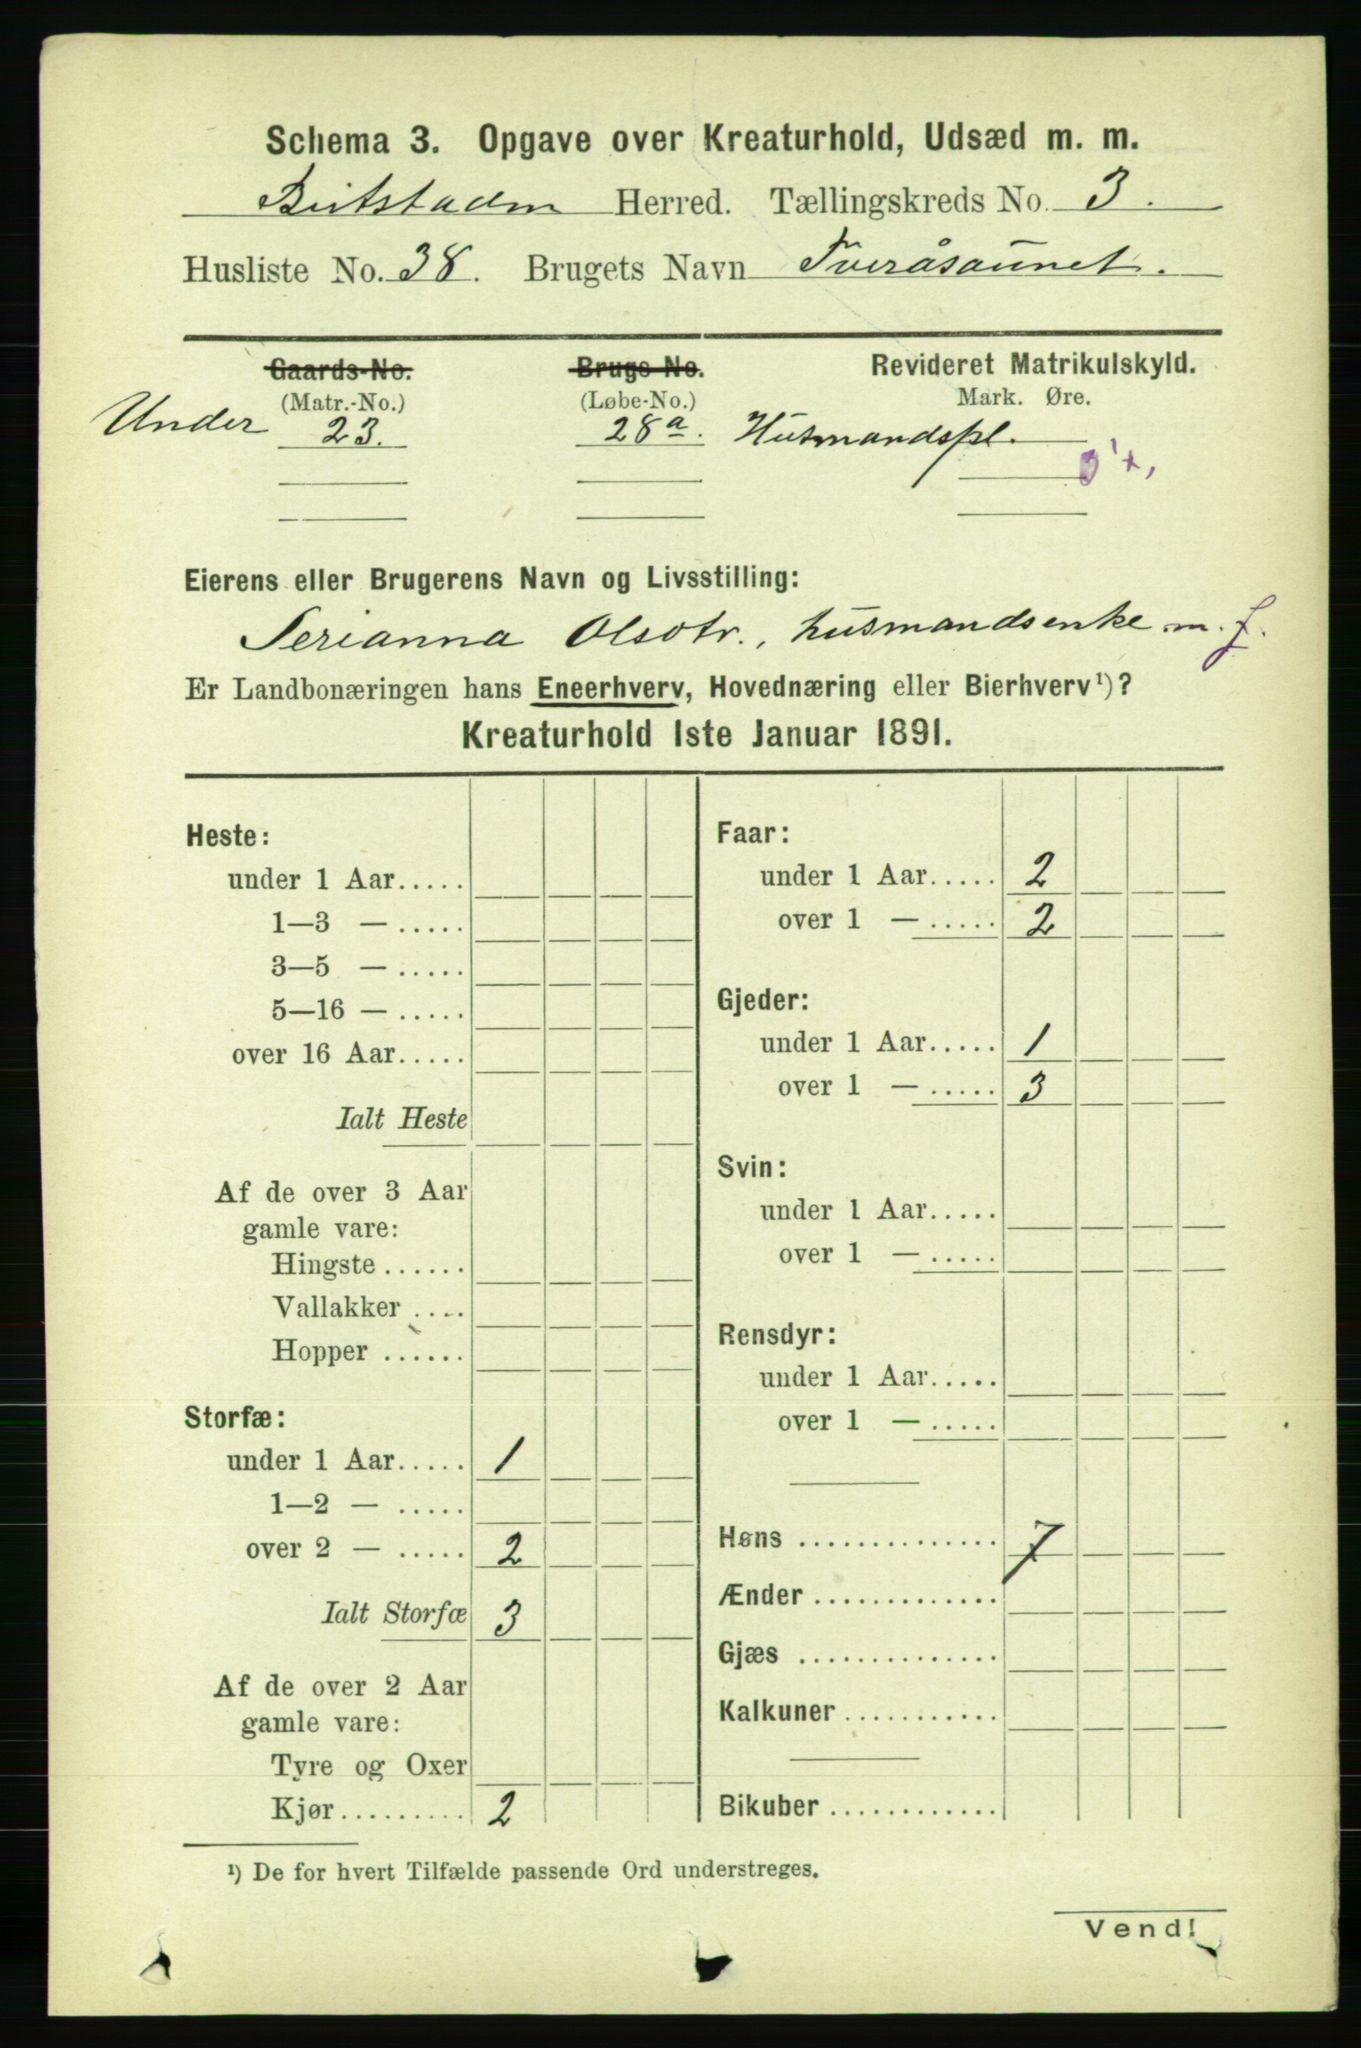 Schema 3. Opgave over Kreaturhold, Udsæd m. m.
Beitstaden Herred. Tællingskreds No. 3.
Husliste No. 38. Brugets Navn Tveråsaunet.
Gaards-No. Brugs-No. Revideret Matrikulskyld.
(Matr.-No.) (Løbe-No.) Mark. Øre.
Under 23. 28a. Husmandspl.
Eierens eller Brugerens Navn og Livsstilling:
Serianna Olsdtr., husmandsenke m. j.
Er Landbonæringen hans Eneerhverv, Hovednæring eller Bierhverv¹)?
Kreaturhold 1ste Januar 1891.
Heste:
under 1 Aar.....
1—3 — .....
3—5 — .....
5—16 — .....
over 16 Aar.....
Ialt Heste
Af de over 3 Aar
gamle vare:
Hingste ......
Vallakker ....
Hopper ......
Storfæ:
under 1 Aar..... 1
1—2 — .....
over 2 — ..... 2
Ialt Storfæ 3
Af de over 2 Aar
gamle vare:
Tyre og Oxer
Kjør......... 2
Faar:
under 1 Aar..... 2
over 1 — ..... 2
Gjeder:
under 1 Aar..... 1
over 1 — ..... 3
Svin:
under 1 Aar.....
over 1 — .....
Rensdyr:
under 1 Aar.....
over 1 — .....
Høns .............. 7
Ænder .............
Gjæs ..............
Kalkuner ...........
Bikuber ............
¹) De for hvert Tilfælde passende Ord understreges.
Vend!